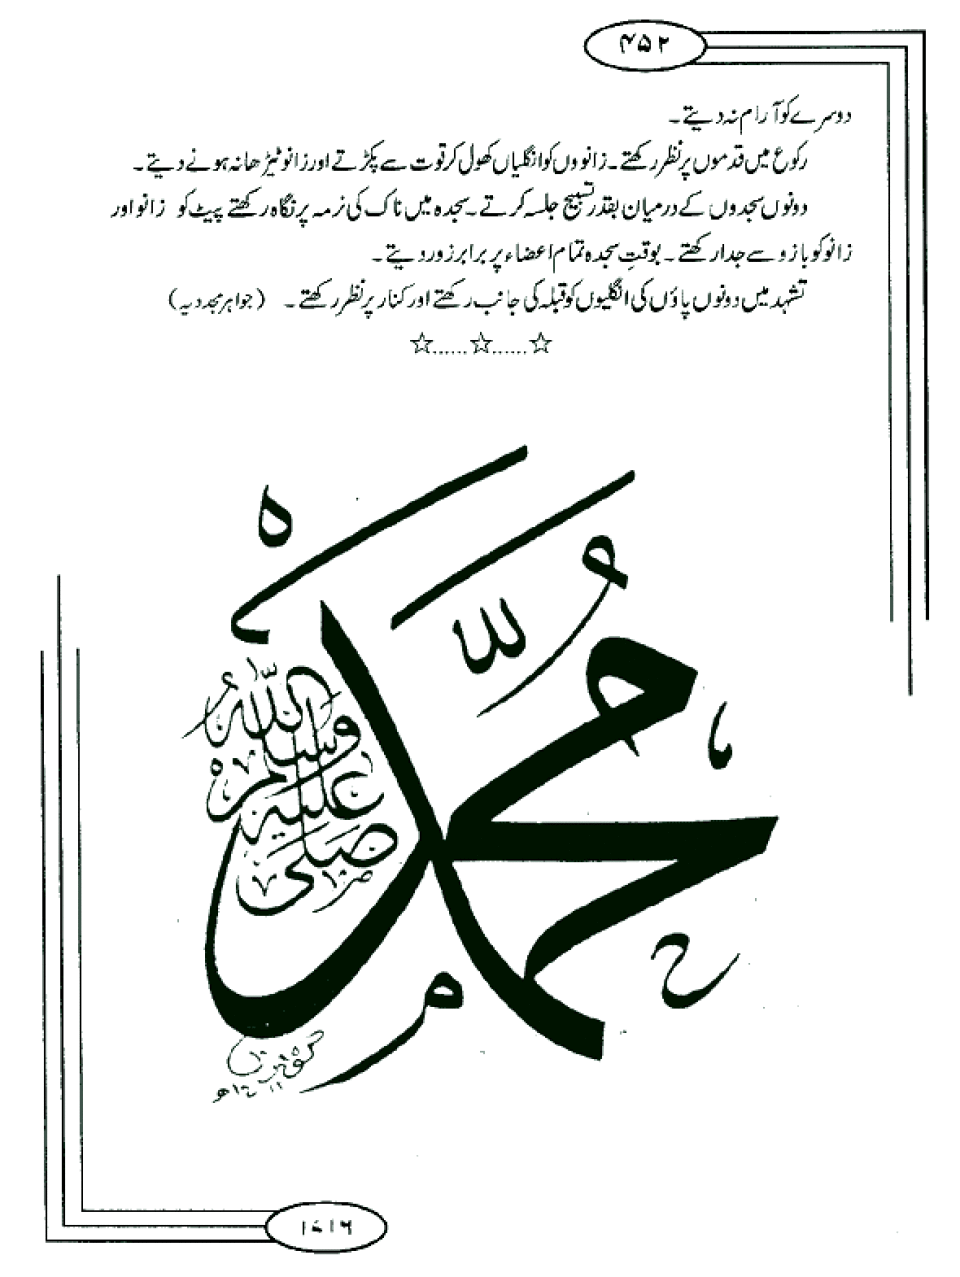 ۴۵۲
دوسرے کو آرام نہ دیتے۔
رکوع میں قدموں پر نظر رکھتے۔ زانووں کو انگلیاں کھول کر قوت سے پکڑتے اور زانو ٹیڑھا نہ ہونے دیتے۔
دونوں سجدوں کے درمیان بقدر تسبیح جلسہ کرتے۔ سجدہ میں ناک کی نرمہ پر نگاہ رکھتے پیٹ کو زانو اور
زانو کو بازو سے جدا رکھتے۔ بوقتِ سجدہ تمام اعضاء پر برابر زور دیتے۔
تشہد میں دونوں پاؤں کی انگلیوں کو قبلہ کی جانب رکھتے اور کنار پر نظر رکھتے۔ (جواہر مجددیہ)
☆......☆......☆
محمد
صلی اللہ علیہ وسلم